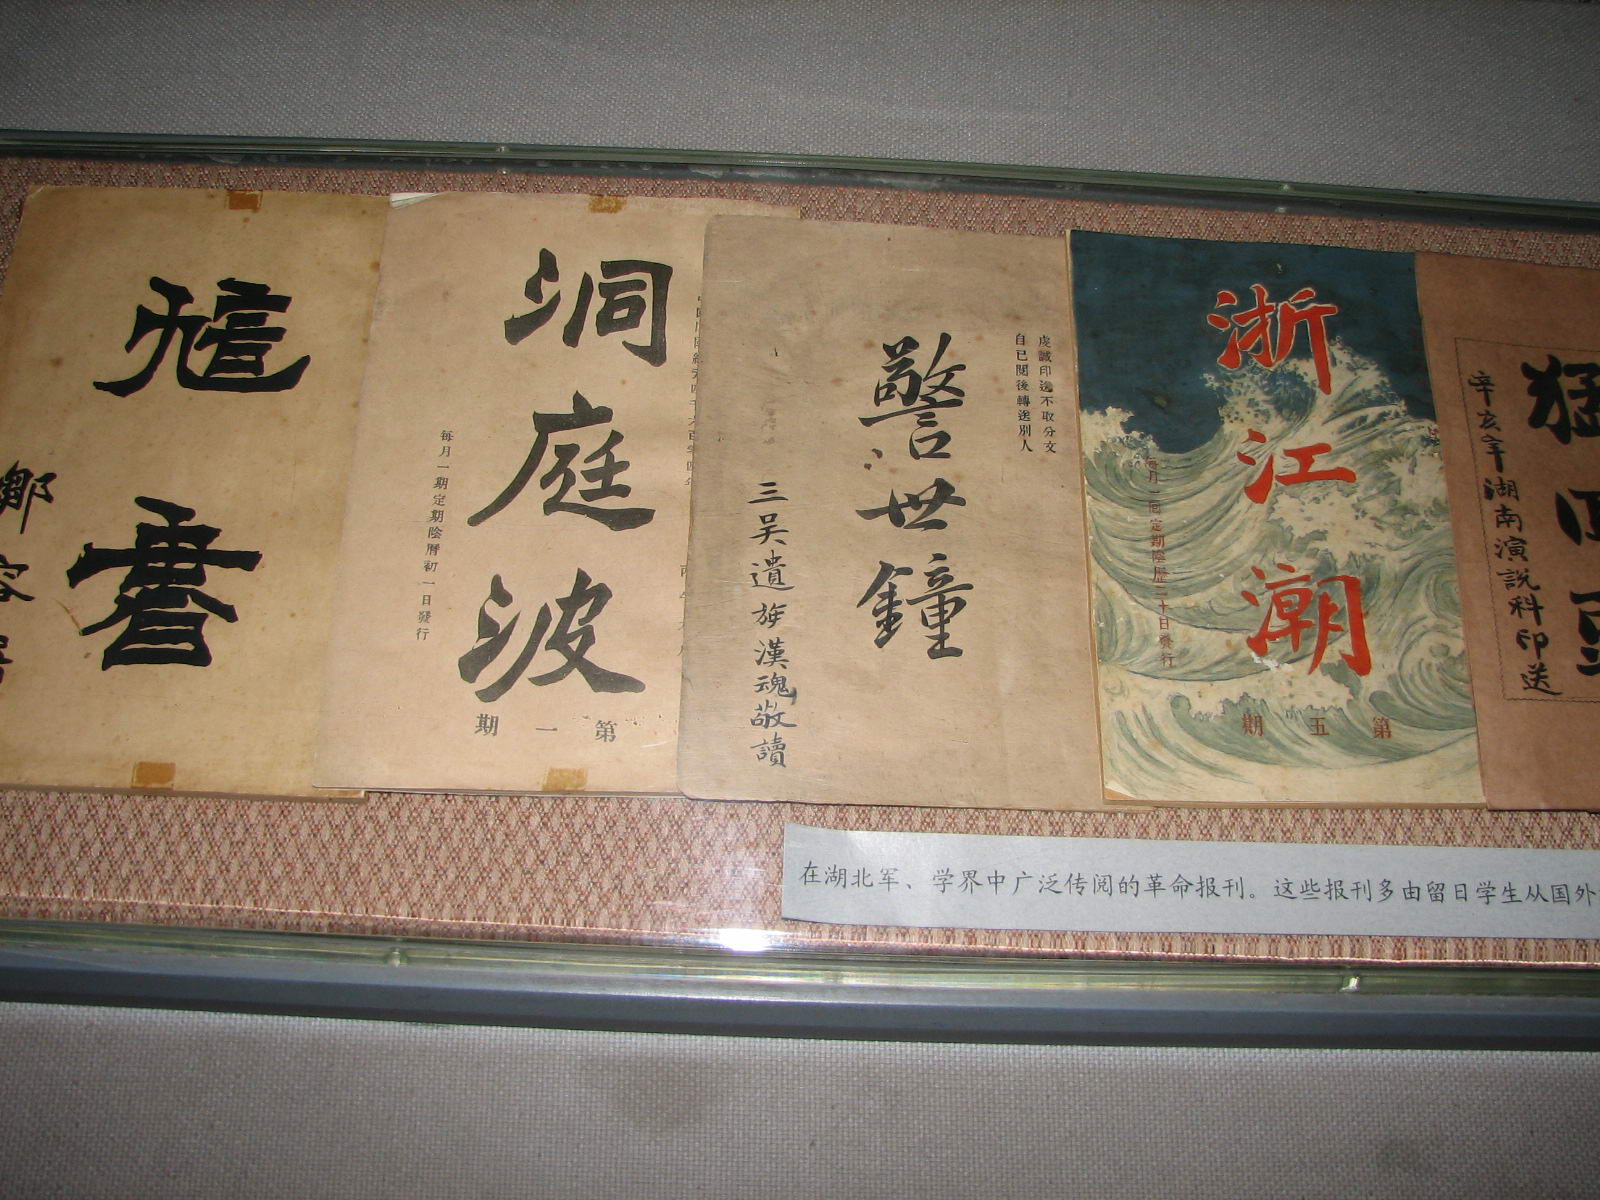 訄書
鄒容
洞庭波
每月一期定期陰曆初一日發行
第一期
警世鐘
虔誠印送不取分文
自己閱後轉送別人
三吴遺族漢魂敬讀
浙江潮
每月一回定期陰歷二十日發行
第五期
猛回頭
辛亥年湖南演說科印送
在湖北军、学界中广泛传阅的革命报刊。这些报刊多由留日学生从国外